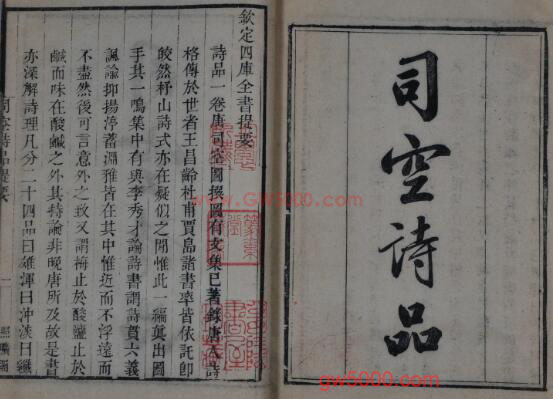 司空詩品
欽定四庫全書提要
詩品一卷唐司空圖撰圖有文集已著錄唐人詩
格傳於世者王昌齡杜甫賈島諸書率皆依託即
皎然杼山詩式亦在疑似之間惟此一編真出圖
手其一鳴集中有與李秀才論詩書謂詩貫六義
諷諭抑揚渟蓄淵雅皆在其中惟近而不浮遠而
不盡然後可言意外之致又謂梅止於酸鹽止於
鹹而味在酸鹹之外其持論非晚唐所及故是書
亦深解詩理凡分二十四品曰雄渾曰沖淡曰纖
司空詩品提要
一
照曠閣
www.GW5000.com
gw5000.com